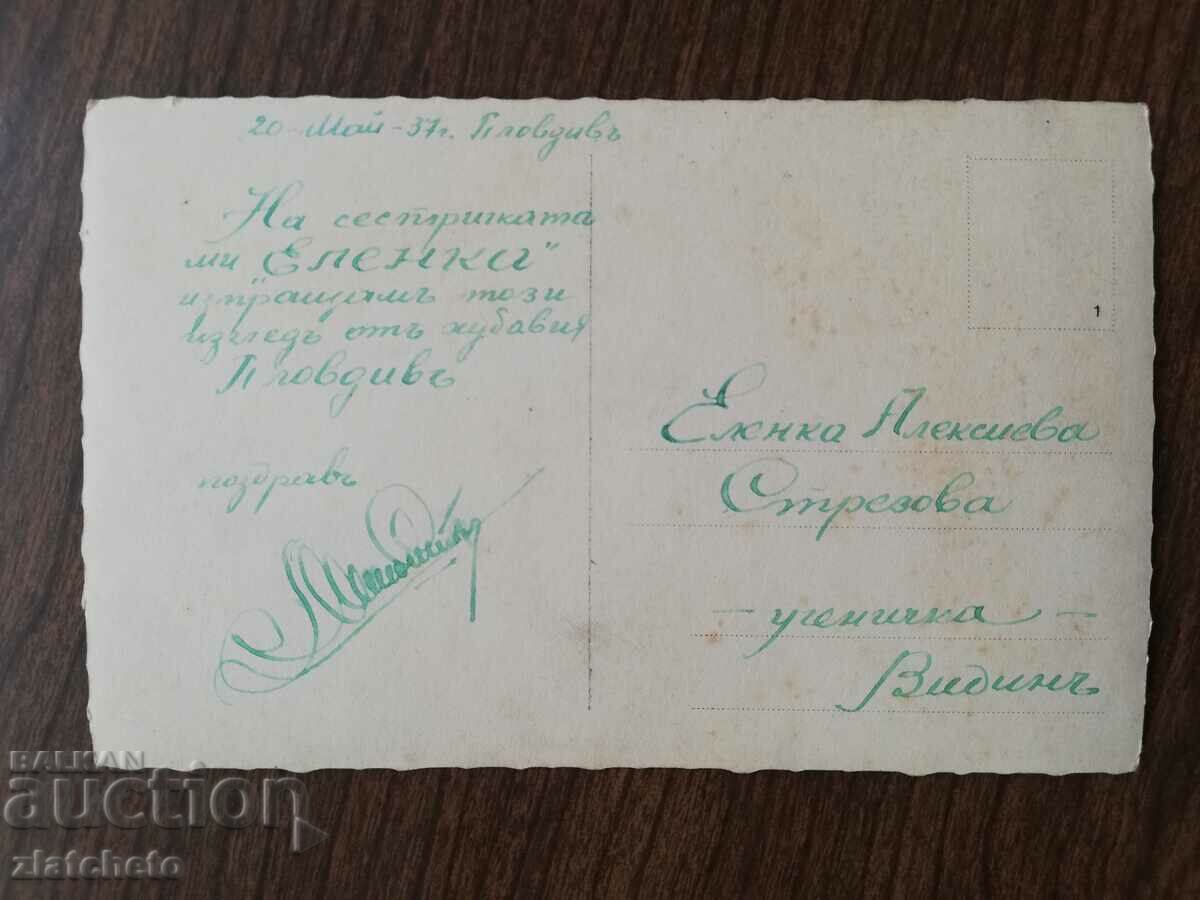 20 - Май - 37г. Пловдивъ
На сестричката
ми "Еленка"
изпращамъ този
изгледъ отъ хубавия
Пловдивъ
поздравъ
1
Еленка Алексиева
Стрезова
- ученичка -
Видинъ
BALKAN
auction
zlatcheto